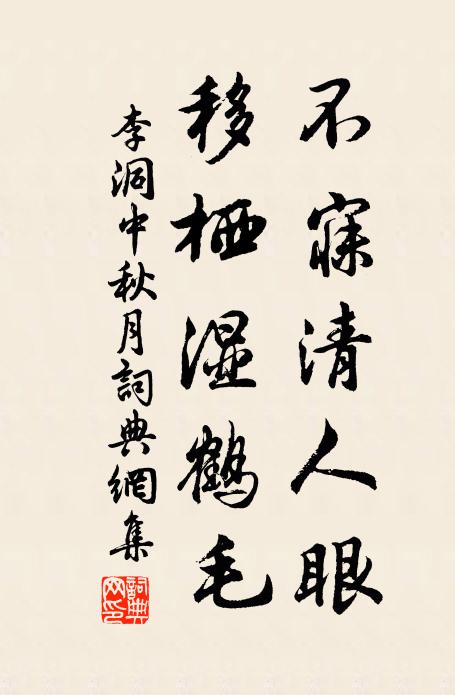 不寐清人眼
移栖湿鶴毛
李洞中秋月詞典網集
詞典
网印